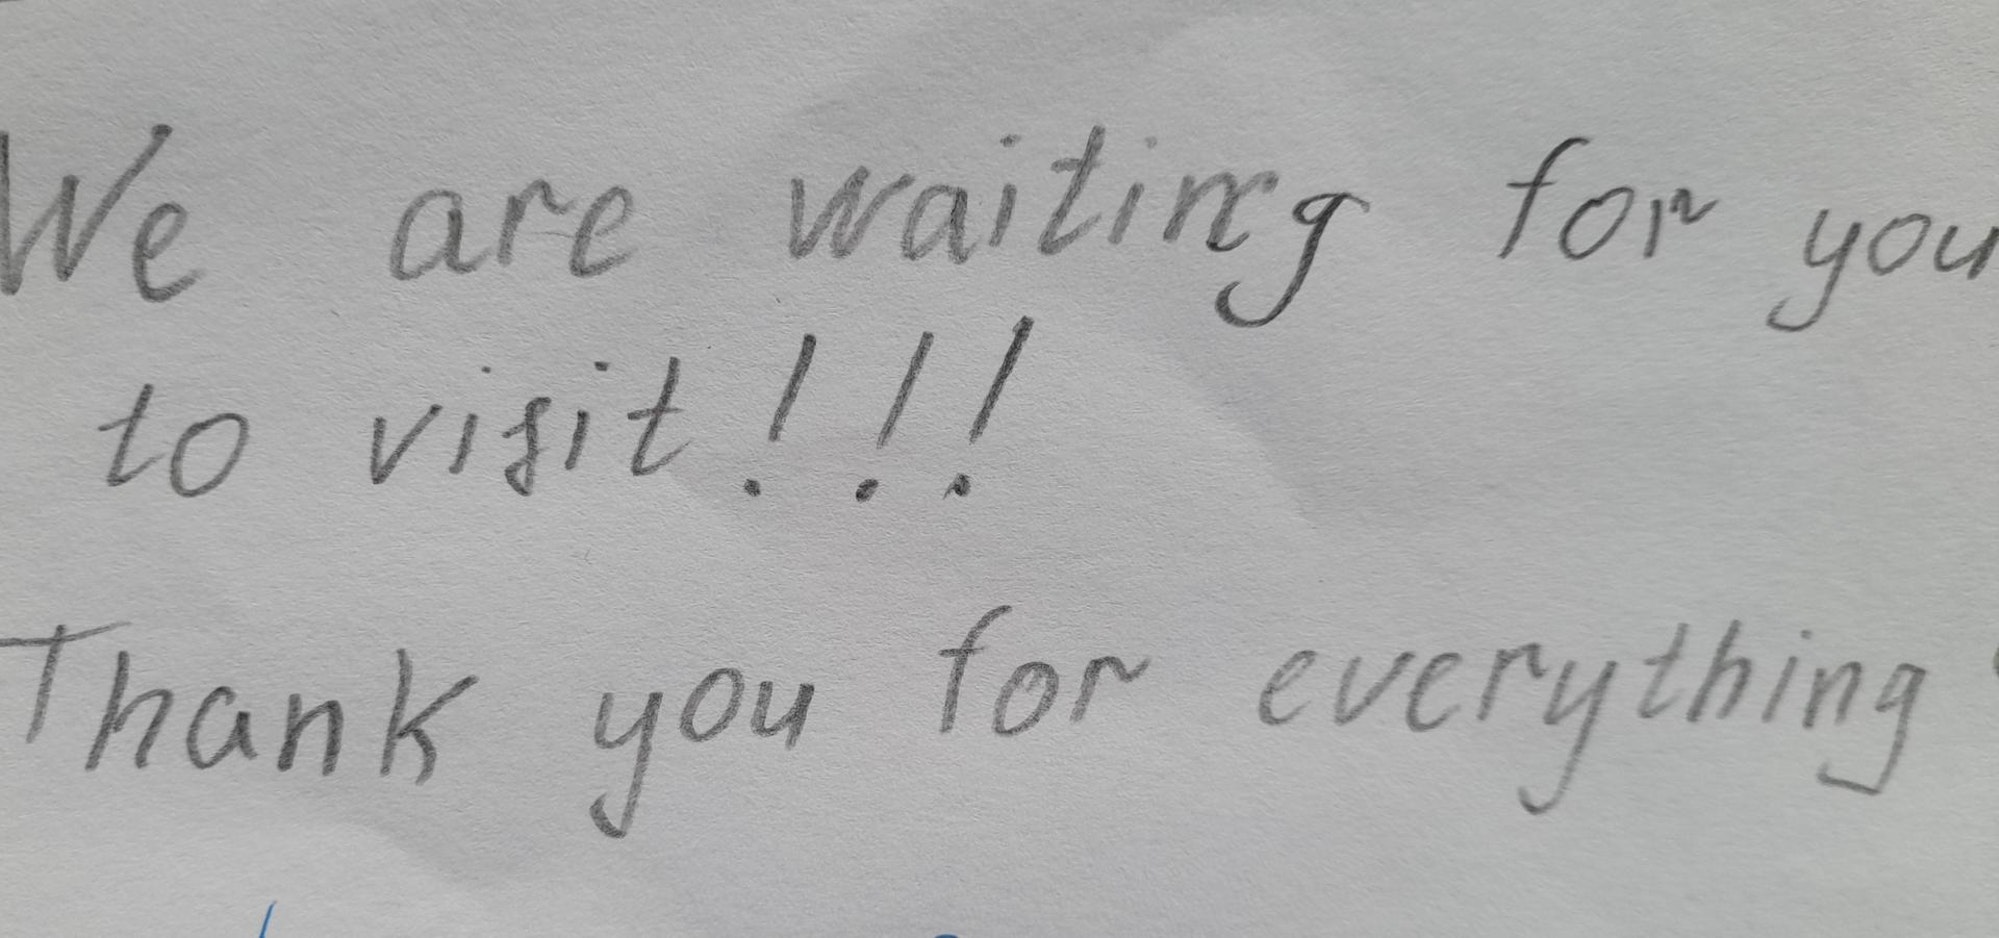 We are waiting for you
to visit!!!
Thank you for everything